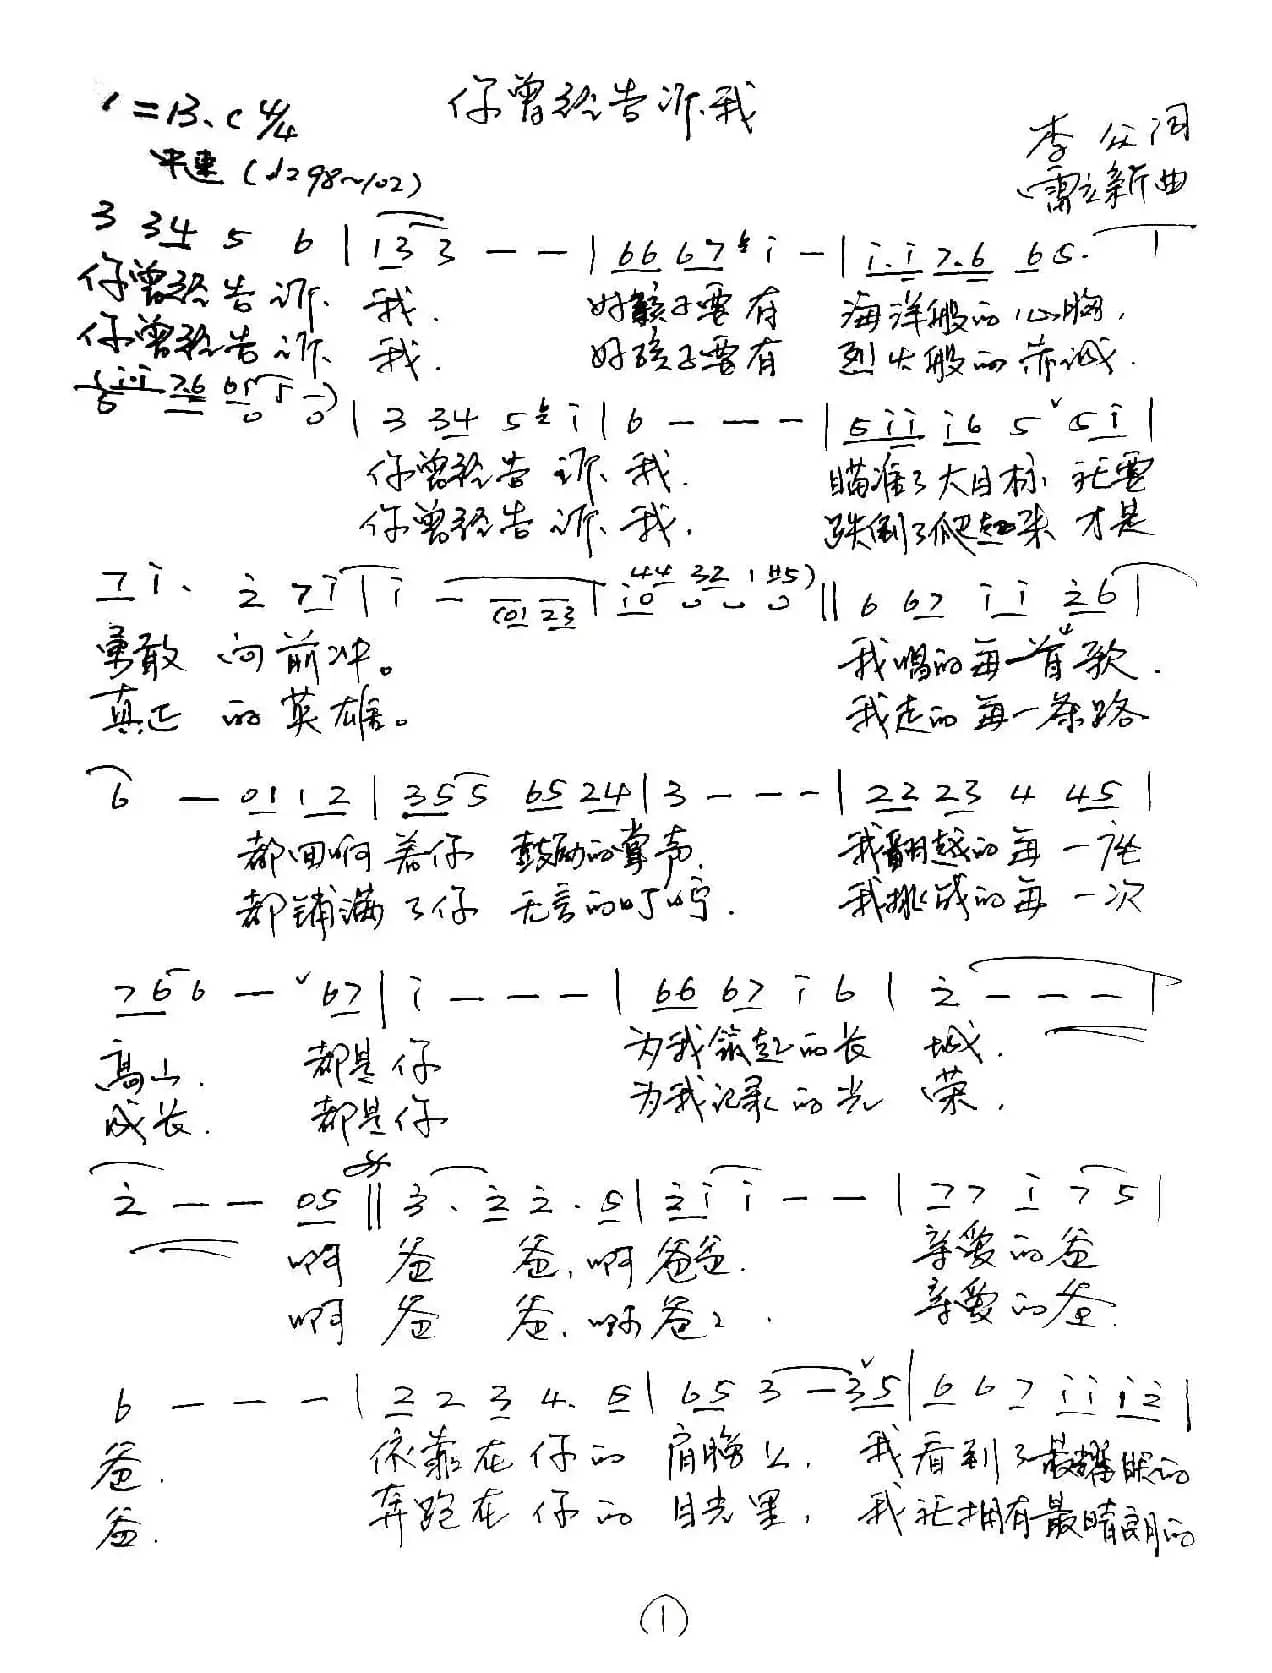 你曾经告诉我
1=B、C 4/4
中速(♩=98~102)
李众词
雷立新曲
3 34 5 6 | 13 3 - - | 66 67 i - | i.i 7.6 65.
你曾经告诉我. 好孩子要有 海洋般的心胸,
你曾经告诉我. 好孩子要有 烈火般的赤诚.
(i.i 7.6 65 5 -)
| 3 34 5 i | 6 - - - | 5ii i6 5 ∨ 5i |
你曾经告诉我. 瞄准了大目标 就要
你曾经告诉我. 跌倒了爬起来 才是
7i. 2 7i | i - (01 23 | i0 44 32 1 #5) || 6 67 ii 26 |
勇敢 向前冲。 我唱的每一首歌.
真正 的英雄。 我走的每一条路
6 - 01 12 | 355 65 24 | 3 - - - | 22 23 4 45 |
都回响着你 鼓励的掌声. 我翻越的每一座
都铺满了你 无言的叮咛. 我挑战的每一次
766 - ∨ 67 | i - - - | 66 67 i 6 | 2 - - - |
高山. 都是你 为我筑起的长 城.
成长. 都是你 为我记录的光 荣.
2 - - 05 || 3. 2 2. 5 | 2i i - - | 77 i 7 5 |
啊 爸 爸, 啊爸爸. 亲爱的爸
啊 爸 爸, 啊爸爸. 亲爱的爸
6 - - - | 2 2 3 4. 5 | 65 3 - ∨ 35 | 6 6 7 ii i2 |
爸. 依靠在你的 肩膀上, 我看到了最耀眼的
爸. 奔跑在你的 目光里, 我就拥有最晴朗的
1